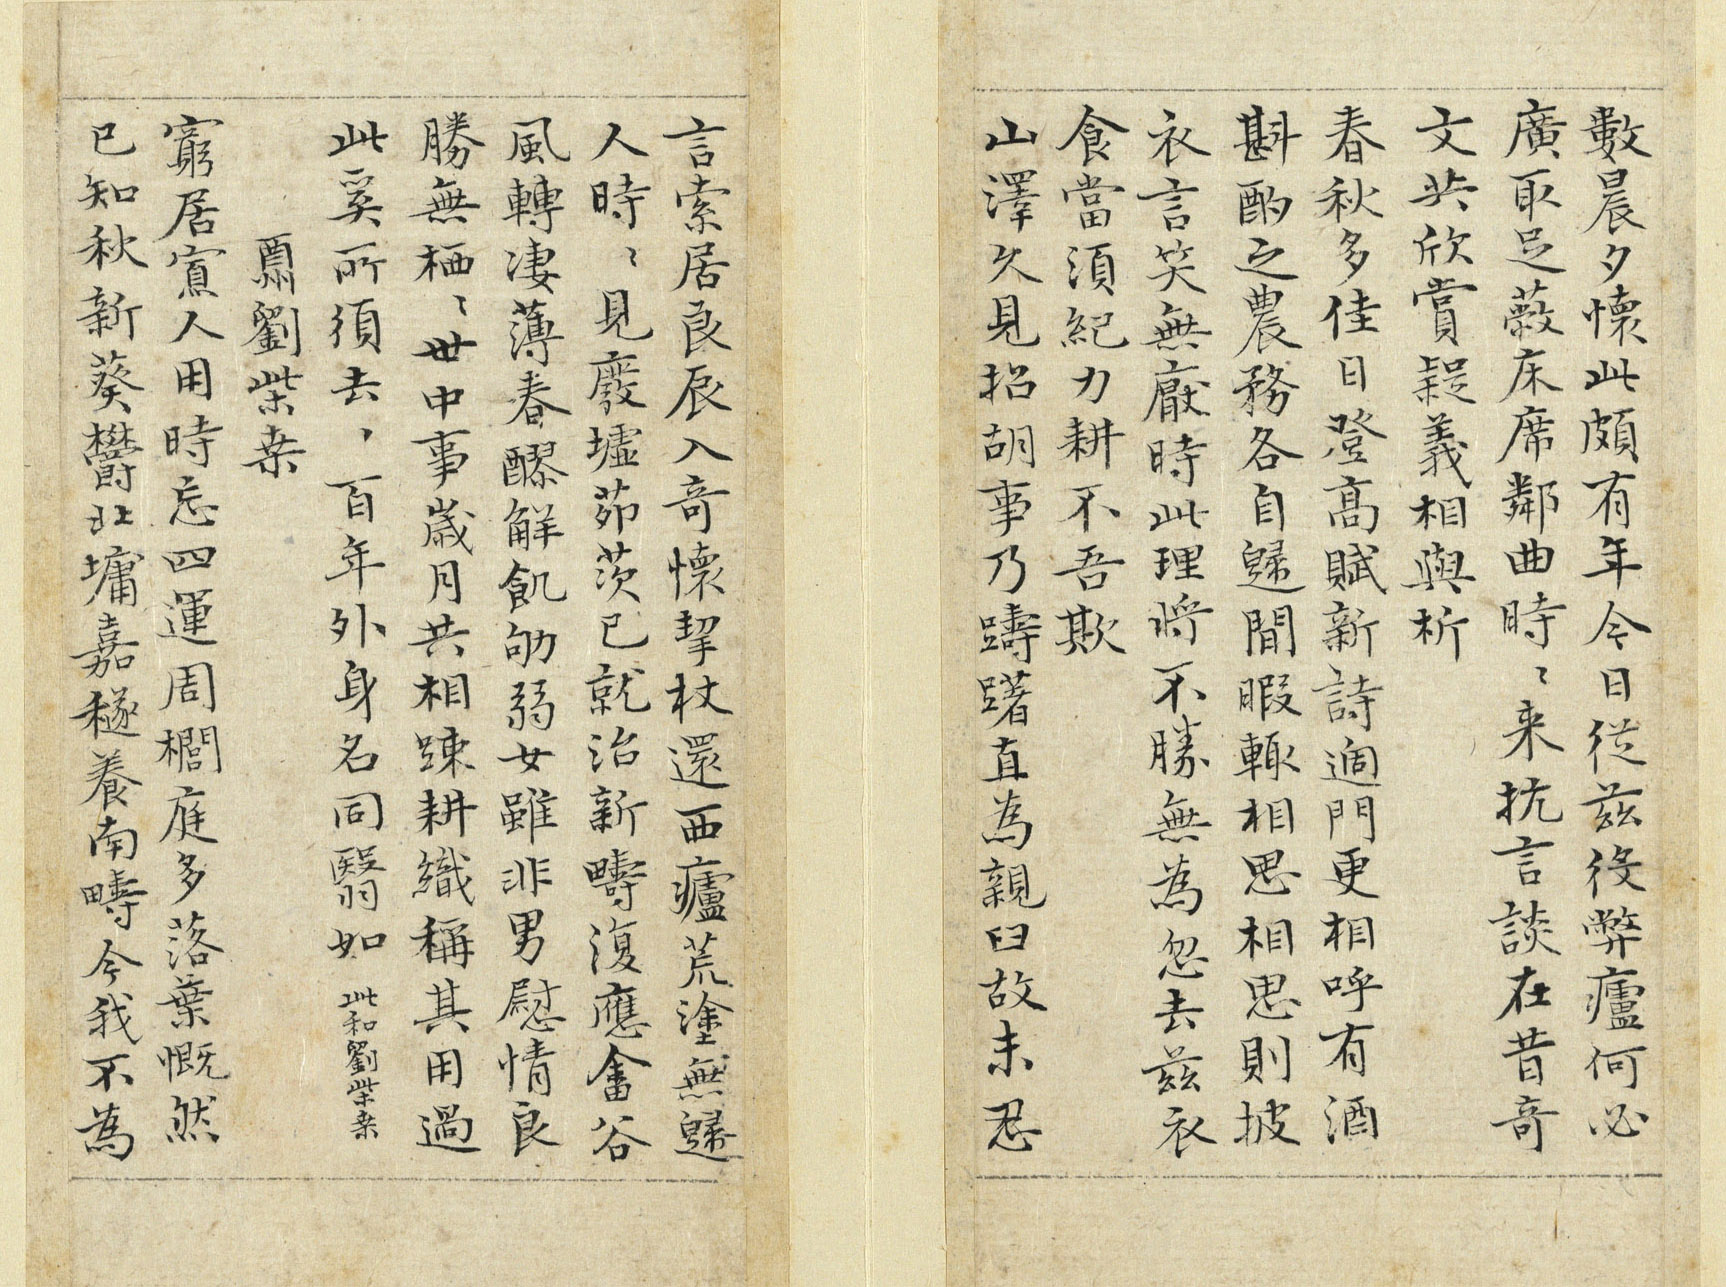 數晨夕懷此頗有年今日從茲役弊廬何必
廣取足蔽床席鄰曲時〻来抗言談在昔奇
文共欣賞疑義相與析
春秋多佳日登高賦新詩過門更相呼有酒
斟酌之農務各自歸閒暇輙相思相思則披
衣言笑無厭時此理將不勝無為忽去茲衣
食當須紀力耕不吾欺
山澤久見招胡事乃躊躇直為親臼故未忍
言索居良辰入奇懷挈杖還西廬荒塗無歸
人時〻見廢墟茆茨已就治新疇復應畬谷
風轉凄薄春醪解飢劬弱女雖非男慰情良
勝無栖〻世中事歲月共相踈耕織稱其用過
此奚所須去〻百年外身名同翳如 此和劉柴桒
酬劉柴桒
窮居寡人用時忘四運周櫚庭多落葉慨然
已知秋新葵欝北墉嘉穟養南疇今我不為